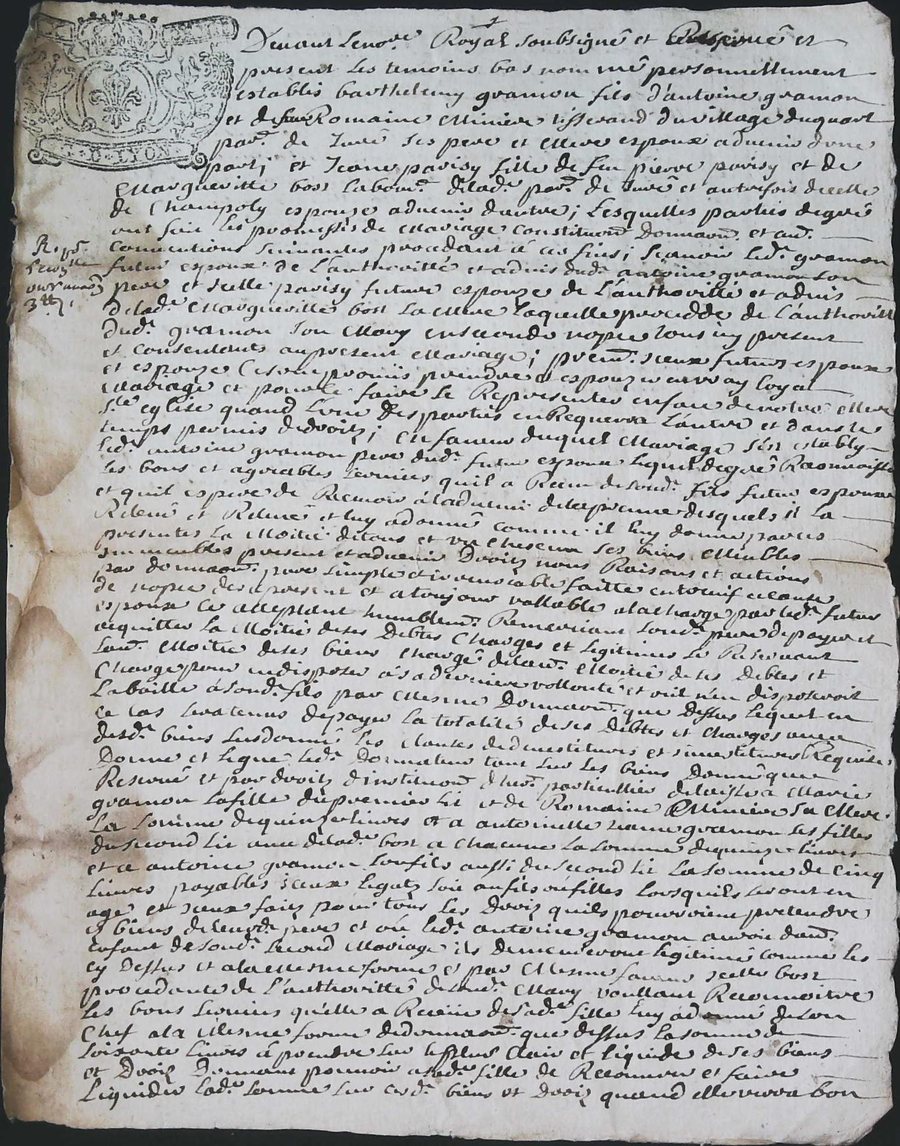 G. D. LYON
Devant Le no.re Royal soubsigné et
present les temoins bas nommé personnellement
establis barthelemy gramon fils d'antoine gramon
et de feue Romaine Miniere tisserand du village du quart
par.e de Juré ses pere et Mere espoux advenir d'une
part; et Jeane parisy fille de feu pierre parisy et de
Marguerite bost labour.r de lad.e par.e de Jure et autrefois de celle
de Champoly espouze advenir d'autre; Lesquelles parties de gré
ont fait les promesses de Mariage constitu.on donnaon. et au.
conventions suivantes procedant a ces fins; scavoir led. gramon
futur espoux de l'authorité et advis dud. antoine gramon son
pere et icelle parisy future espouze de l'authorité et advis
de lad.e Marguerite bost sa Mere laquelle procedde de l'authorité
dud. gramon son Mary en seconde nopce tous icy present
et consentants au present Mariage; prem.t iceux futurs espoux
et espouze se sont promis prendre a espoux en vray loyal
Mariage et pour ce faire se Representer en face de notre Mere
S.te eglise quand l'une des parties en Requerra l'autre et dans le
temps permis de droit; en faveur duquel Mariage s'est estably
led. antoine gramon pere dud. futur espoux lequel de gré
les bons et agreables services quil a Receu de sond. fils futur espoux
et quil espere de Recevoir a l'advenir de la preuve desquels il la
Relevé et Releve et luy a donné comme il luy donne par ces
presentes la Moitié de tous et un chescun ses biens Meubles
immeubles present et advenir Droits noms Raisons et actions
par donnaon. pure simple et irrevocable faitte entre vif et cause
de nopce des a present et a toujour vallable a la charge par led. futur
espoux ce acceptant humblem.t Remerciant sond. pere de payer et
acquitter la Moitié de ses Debtes Charges et legitimes se Reservant
l'au.e Moitié de ses biens Chargé de l'au.e Moitié de ses debtes et
Charges pour en disposer a sa derniere vollonté et ou il n'en disposeroit
la baille a sond. fils par Mesme Donnaon. que dessus lequel en
ce cas sera tenus de payer la totalité de ses Debtes et charges avec
desd. biens susdonné les clauses de devestitures et investitures Requises
Donne et legue led. Donnateur tant sur les biens Donné que
Reservé et par droits d'instituon. d'her. particulliere delaisse a Marie
gramon sa fille du premier lit et de Romaine Miniere sa Mere
La somme de quinse livres et a antoinette gramon ses filles
du second lit avec de lad.e bost a chacune la somme de quinse livres
et a antoine gramon son fils aussi du second lit La somme de cinq
livres payables iceux legats soit au fils ou filles lorsquils seront en
age et iceux faits pour tous les droits quils pourroient pretendre
es biens de leurd. pere et ou led. antoine gramon auroit d'au.
enfant de sond. second Mariage ils demeureront legitimé comme les
cy dessus et a la Mesme forme et par Mesme faveur icelle bost
procedante de l'authorité de sond. Mary voullant Reconnoitre
les bons services quelle a Receu de sad.e fille luy a donné de son
Chef a la Mesme forme de donnaon. que dessus la somme de
soixante livres a prendre sur le plus clair et liquide de ses biens
et Droits Donnant pouvoir a sad.e fille de Recouvrer et faire
Liquider lad.e somme sur cesd. biens et droits quand elle verra bon